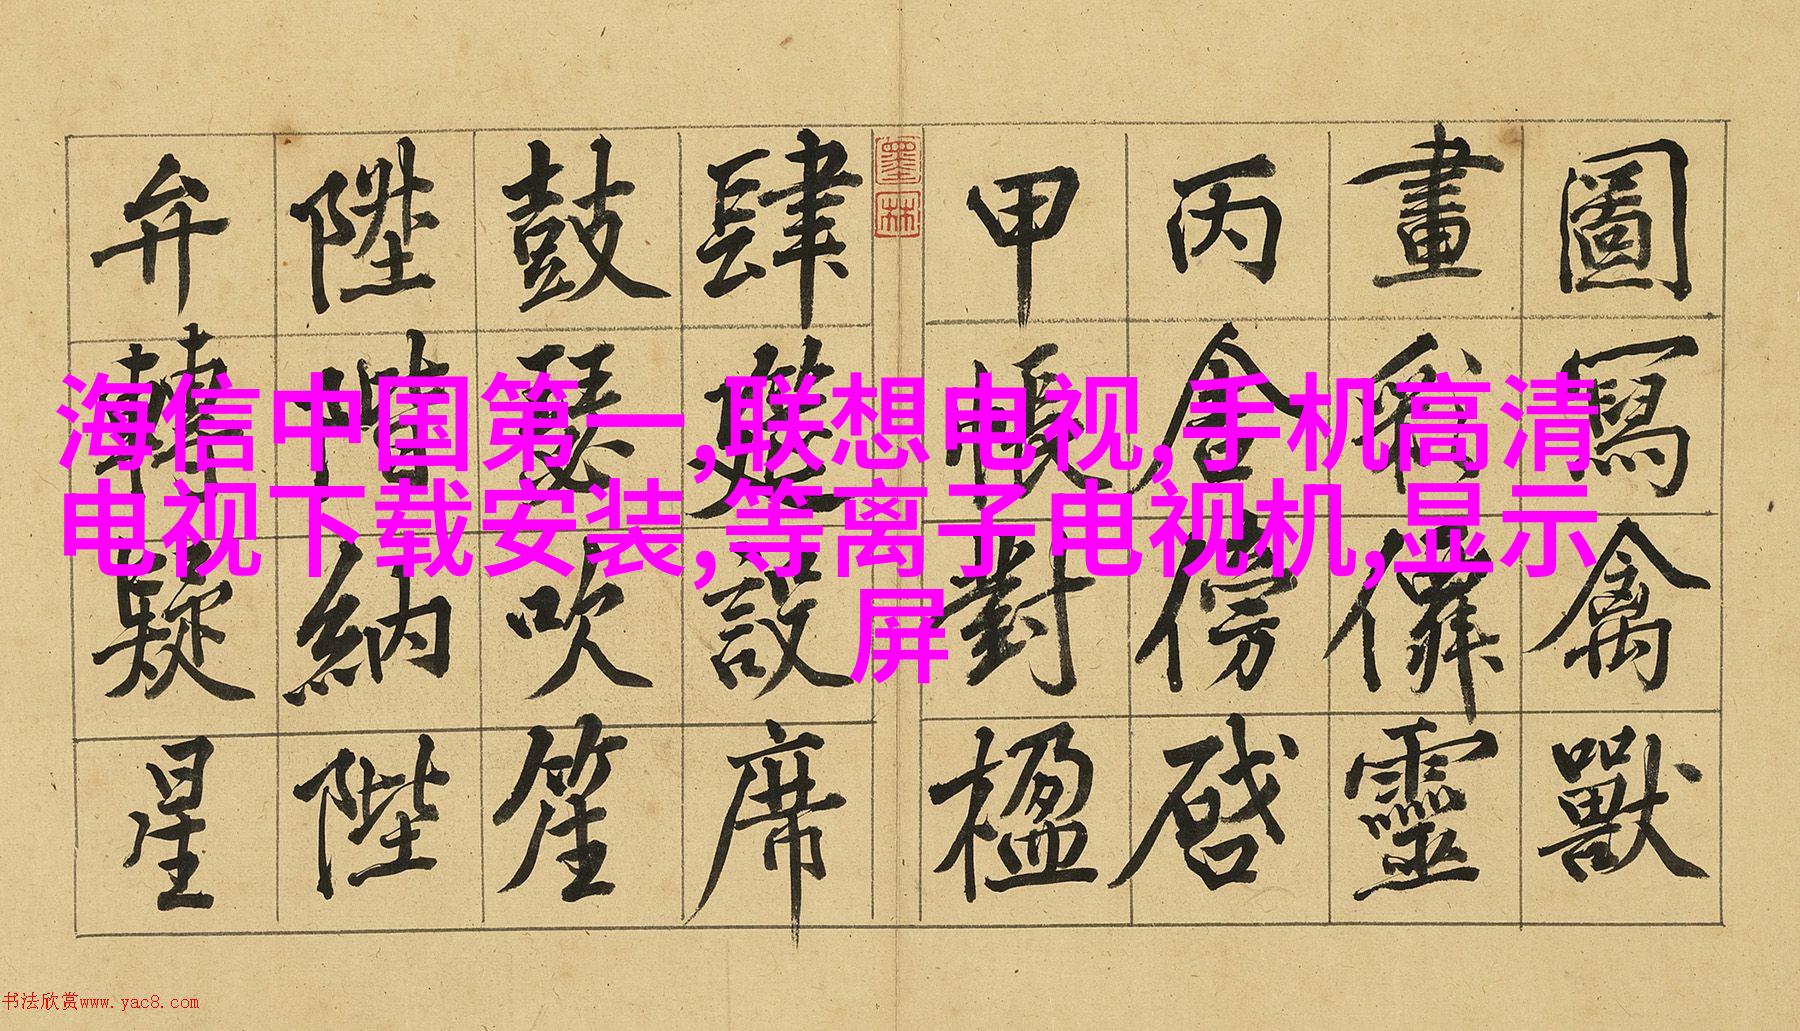 圖寫禽獸
畫彩僊靈
丙舍傍啓
甲帳對楹
墨林
肆筵設席
鼓瑟吹笙
陞階納陛
弁轉疑星
海信中国第一,联想电视,手机高清
电视下载安装,等离子电视机,显示
屏
书法欣赏www.yac8.com